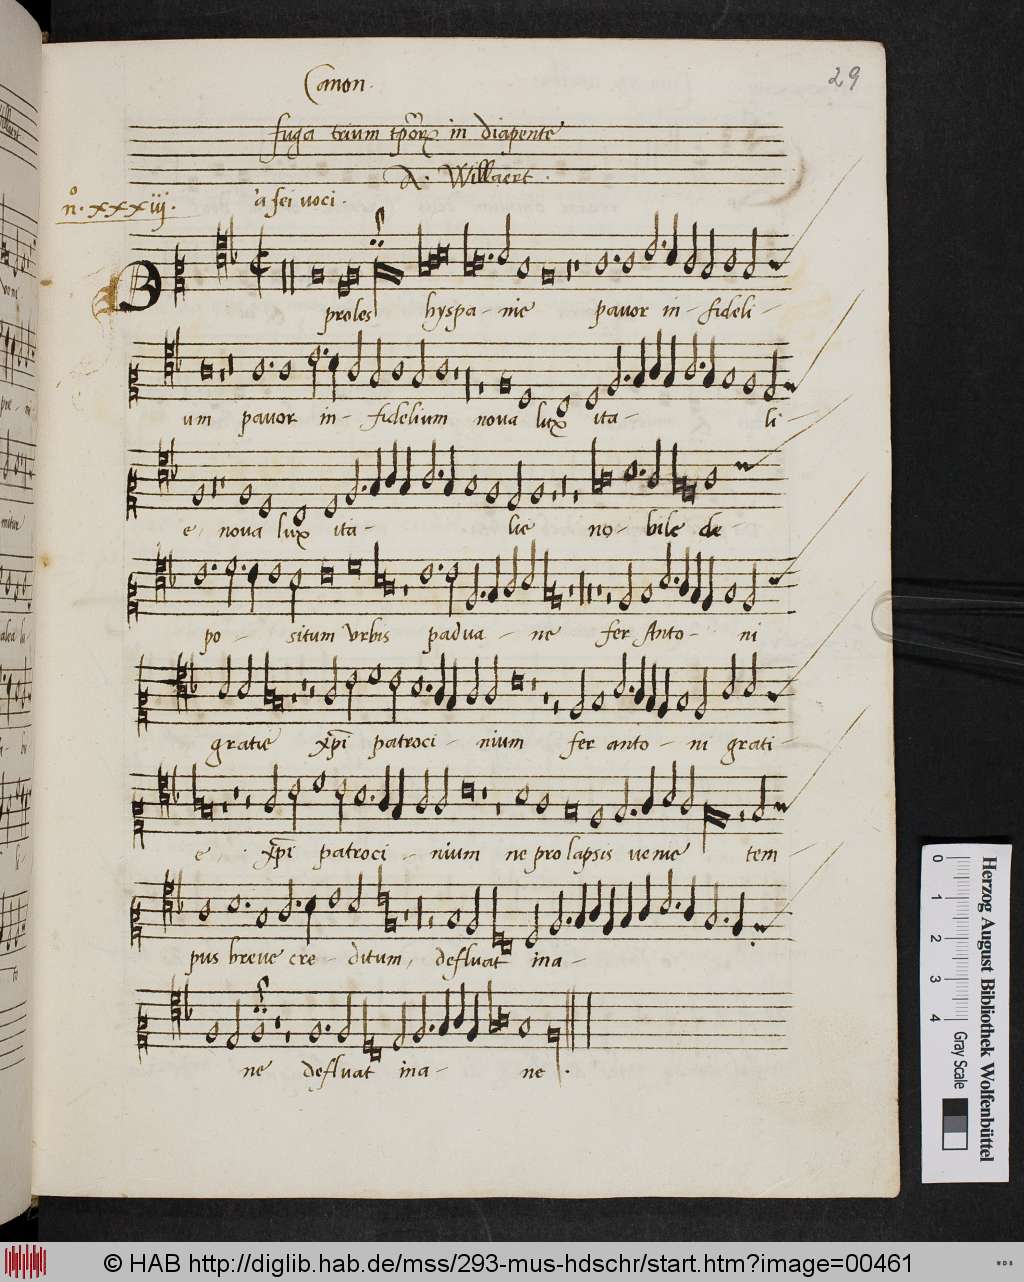 29
Canon.
fuga trium tpor in diapente
A. Willaert.
n.o xxxiij.
a sei voci.
O proles hyspa - nie pavor in - fideli -
um pavor in - fidelium nova lux ita - li -
e, nova lux ita - lie no - bile de -
po - situm vrbis padva - ne fer Anto - ni
gratie xpi patroci - nium fer anto - ni grati -
e, xpi patroci - nium ne prolapsis venie tem -
pus breve cre - ditum, defluat ina -
ne defluat ina - ne.
0 1 2 3 4
Gray Scale
Herzog August Bibliothek Wolfenbüttel
© HAB http://diglib.hab.de/mss/293-mus-hdschr/start.htm?image=00461